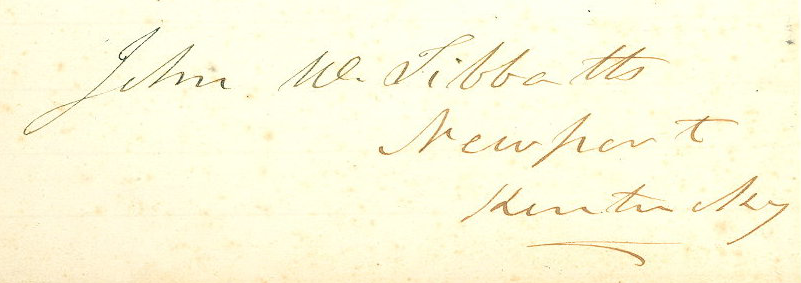 John W. Tibbatts
Newport
Kentucky